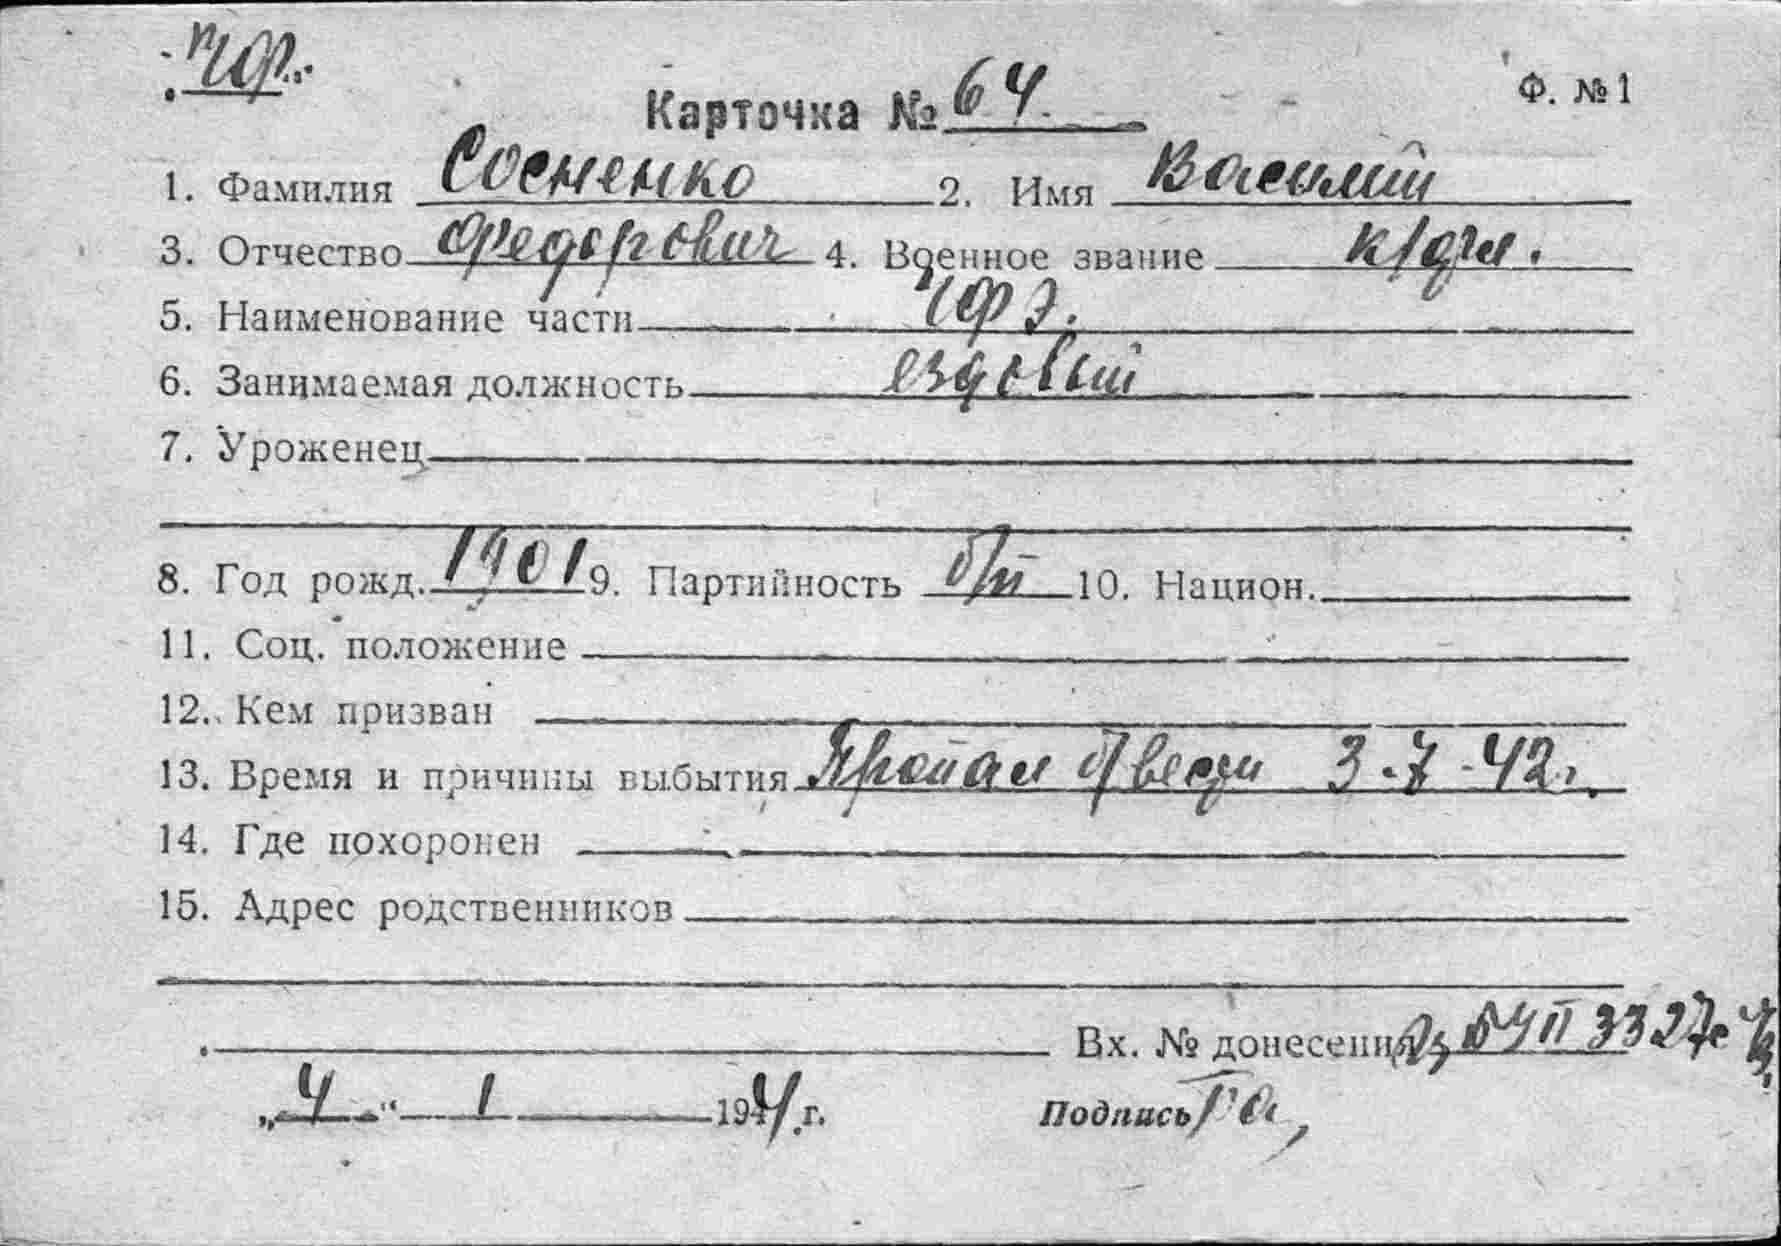 ЧФ.
Карточка № 64
Ф. №1
1. Фамилия Сосненко 2. Имя Василий
3. Отчество Федорович 4. Военное звание к/фл.
5. Наименование части ЧФ
6. Занимаемая должность ездовый
7. Уроженец
8. Год рожд. 1901 9. Партийность б/п 10. Национ.
11. Соц. положение
12. Кем призван
13. Время и причины выбытия Пропал б/вести 3-7-42г.
14. Где похоронен
15. Адрес родственников
Вх. № донесения БУП 3327с
„4“ 1 1944 г. Подпись